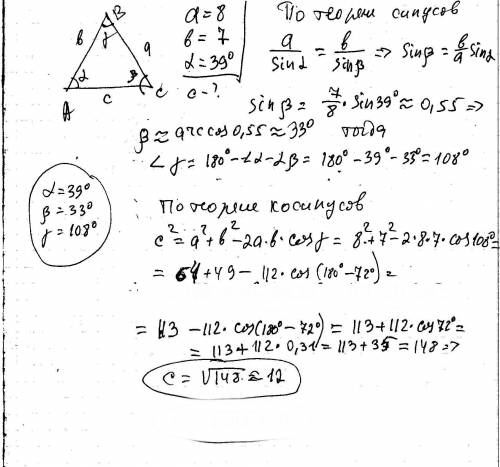 B
b
γ
a
α
β
A
c
C
a = 8
b = 7
α = 39°
c - ?
По теореме синусов
a/sinα = b/sinβ => sinβ = b/a sinα
sinβ = 7/8 · sin39° ≈ 0,55 =>
β ≈ arccos 0,55 ≈ 33° тогда
∠γ = 180° - ∠α - ∠β = 180° - 39° - 33° = 108°
α = 39°
β = 33°
γ = 108°
По теореме косинусов
c² = a² + b² - 2a·b·cosγ = 8² + 7² - 2·8·7·cos108° =
= 64 + 49 - 112·cos(180° - 72°) =
= 113 - 112·cos(180° - 72°) = 113 + 112·cos72° =
= 113 + 112·0,31 = 113 + 35 = 148 =>
c = √148 ≈ 12